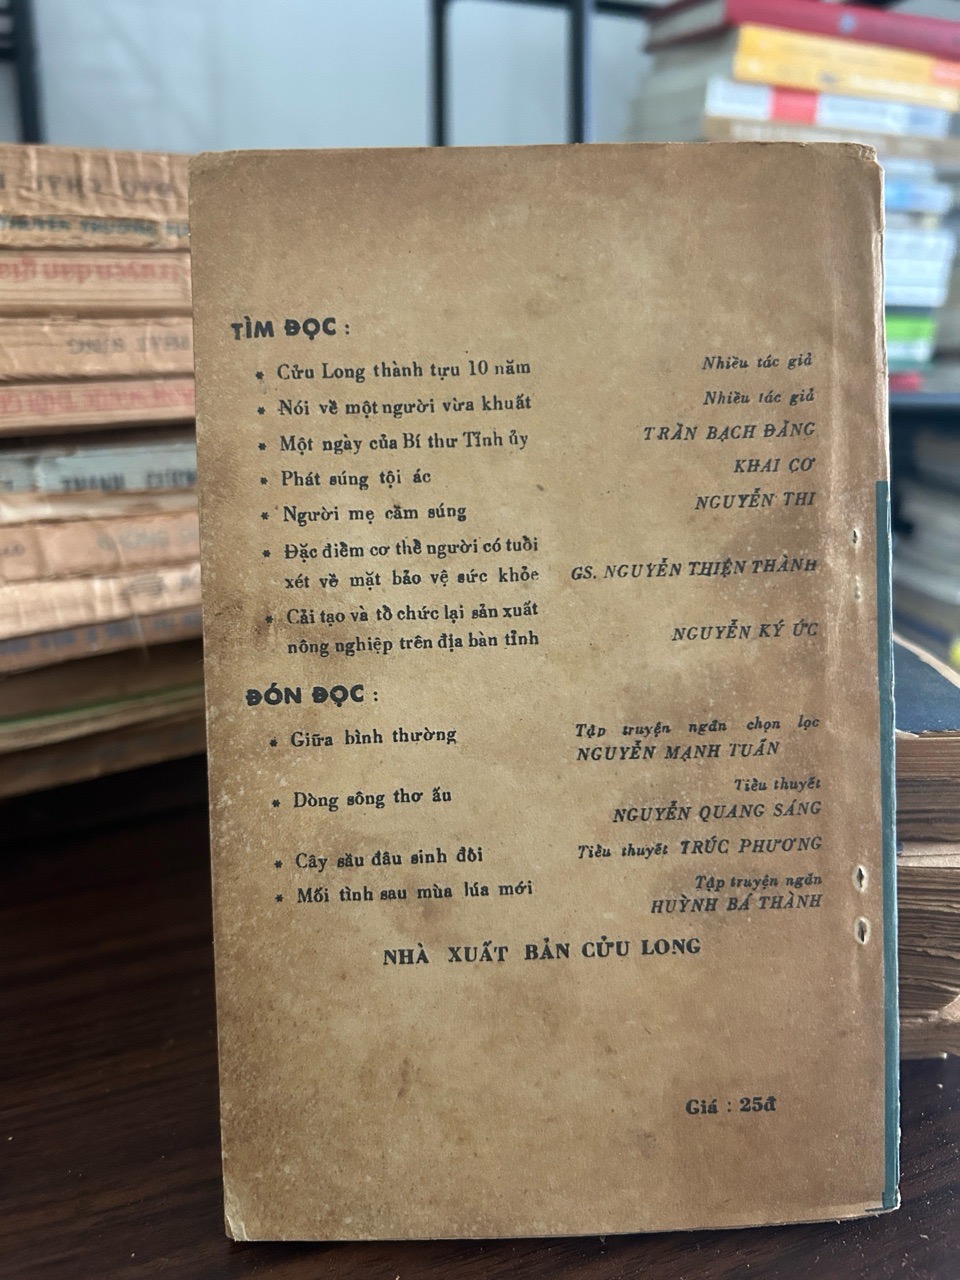 TÌM ĐỌC :
* Cửu Long thành tựu 10 năm Nhiều tác giả
* Nói về một người vừa khuất Nhiều tác giả
* Một ngày của Bí thư Tỉnh ủy TRẦN BẠCH ĐẰNG
* Phát súng tội ác KHAI CƠ
* Người mẹ cầm súng NGUYỄN THI
* Đặc điểm cơ thể người có tuổi
xét về mặt bảo vệ sức khỏe GS. NGUYỄN THIỆN THÀNH
* Cải tạo và tổ chức lại sản xuất
nông nghiệp trên địa bàn tỉnh NGUYỄN KÝ ỨC
ĐÓN ĐỌC :
* Giữa bình thường Tập truyện ngắn chọn lọc
NGUYỄN MẠNH TUẤN
* Dòng sông thơ ấu Tiểu thuyết
NGUYỄN QUANG SÁNG
* Cây sầu đâu sinh đôi Tiểu thuyết TRÚC PHƯƠNG
* Mối tình sau mùa lúa mới Tập truyện ngắn
HUỲNH BÁ THÀNH
NHÀ XUẤT BẢN CỬU LONG
Giá : 25đ